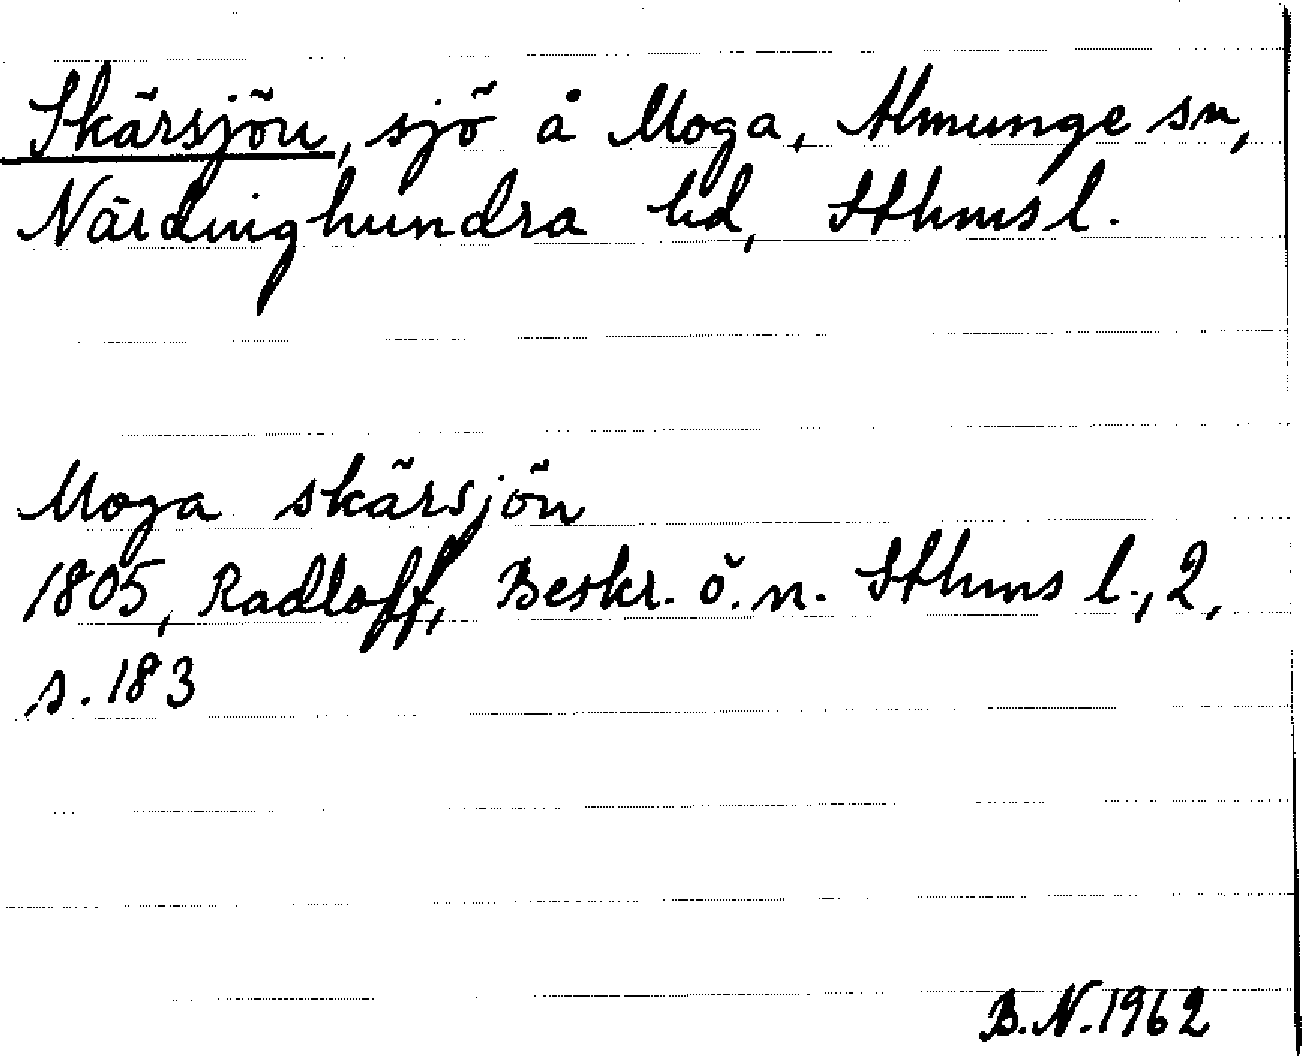 Skärsjön, sjö å Moga, Almunge sn,
Närdinghundra hd, Sthms l.
Moga skärsjön
1805, Radloff, Beskr. ö. n. Sthms l., 2,
s. 183
B.N. 1962